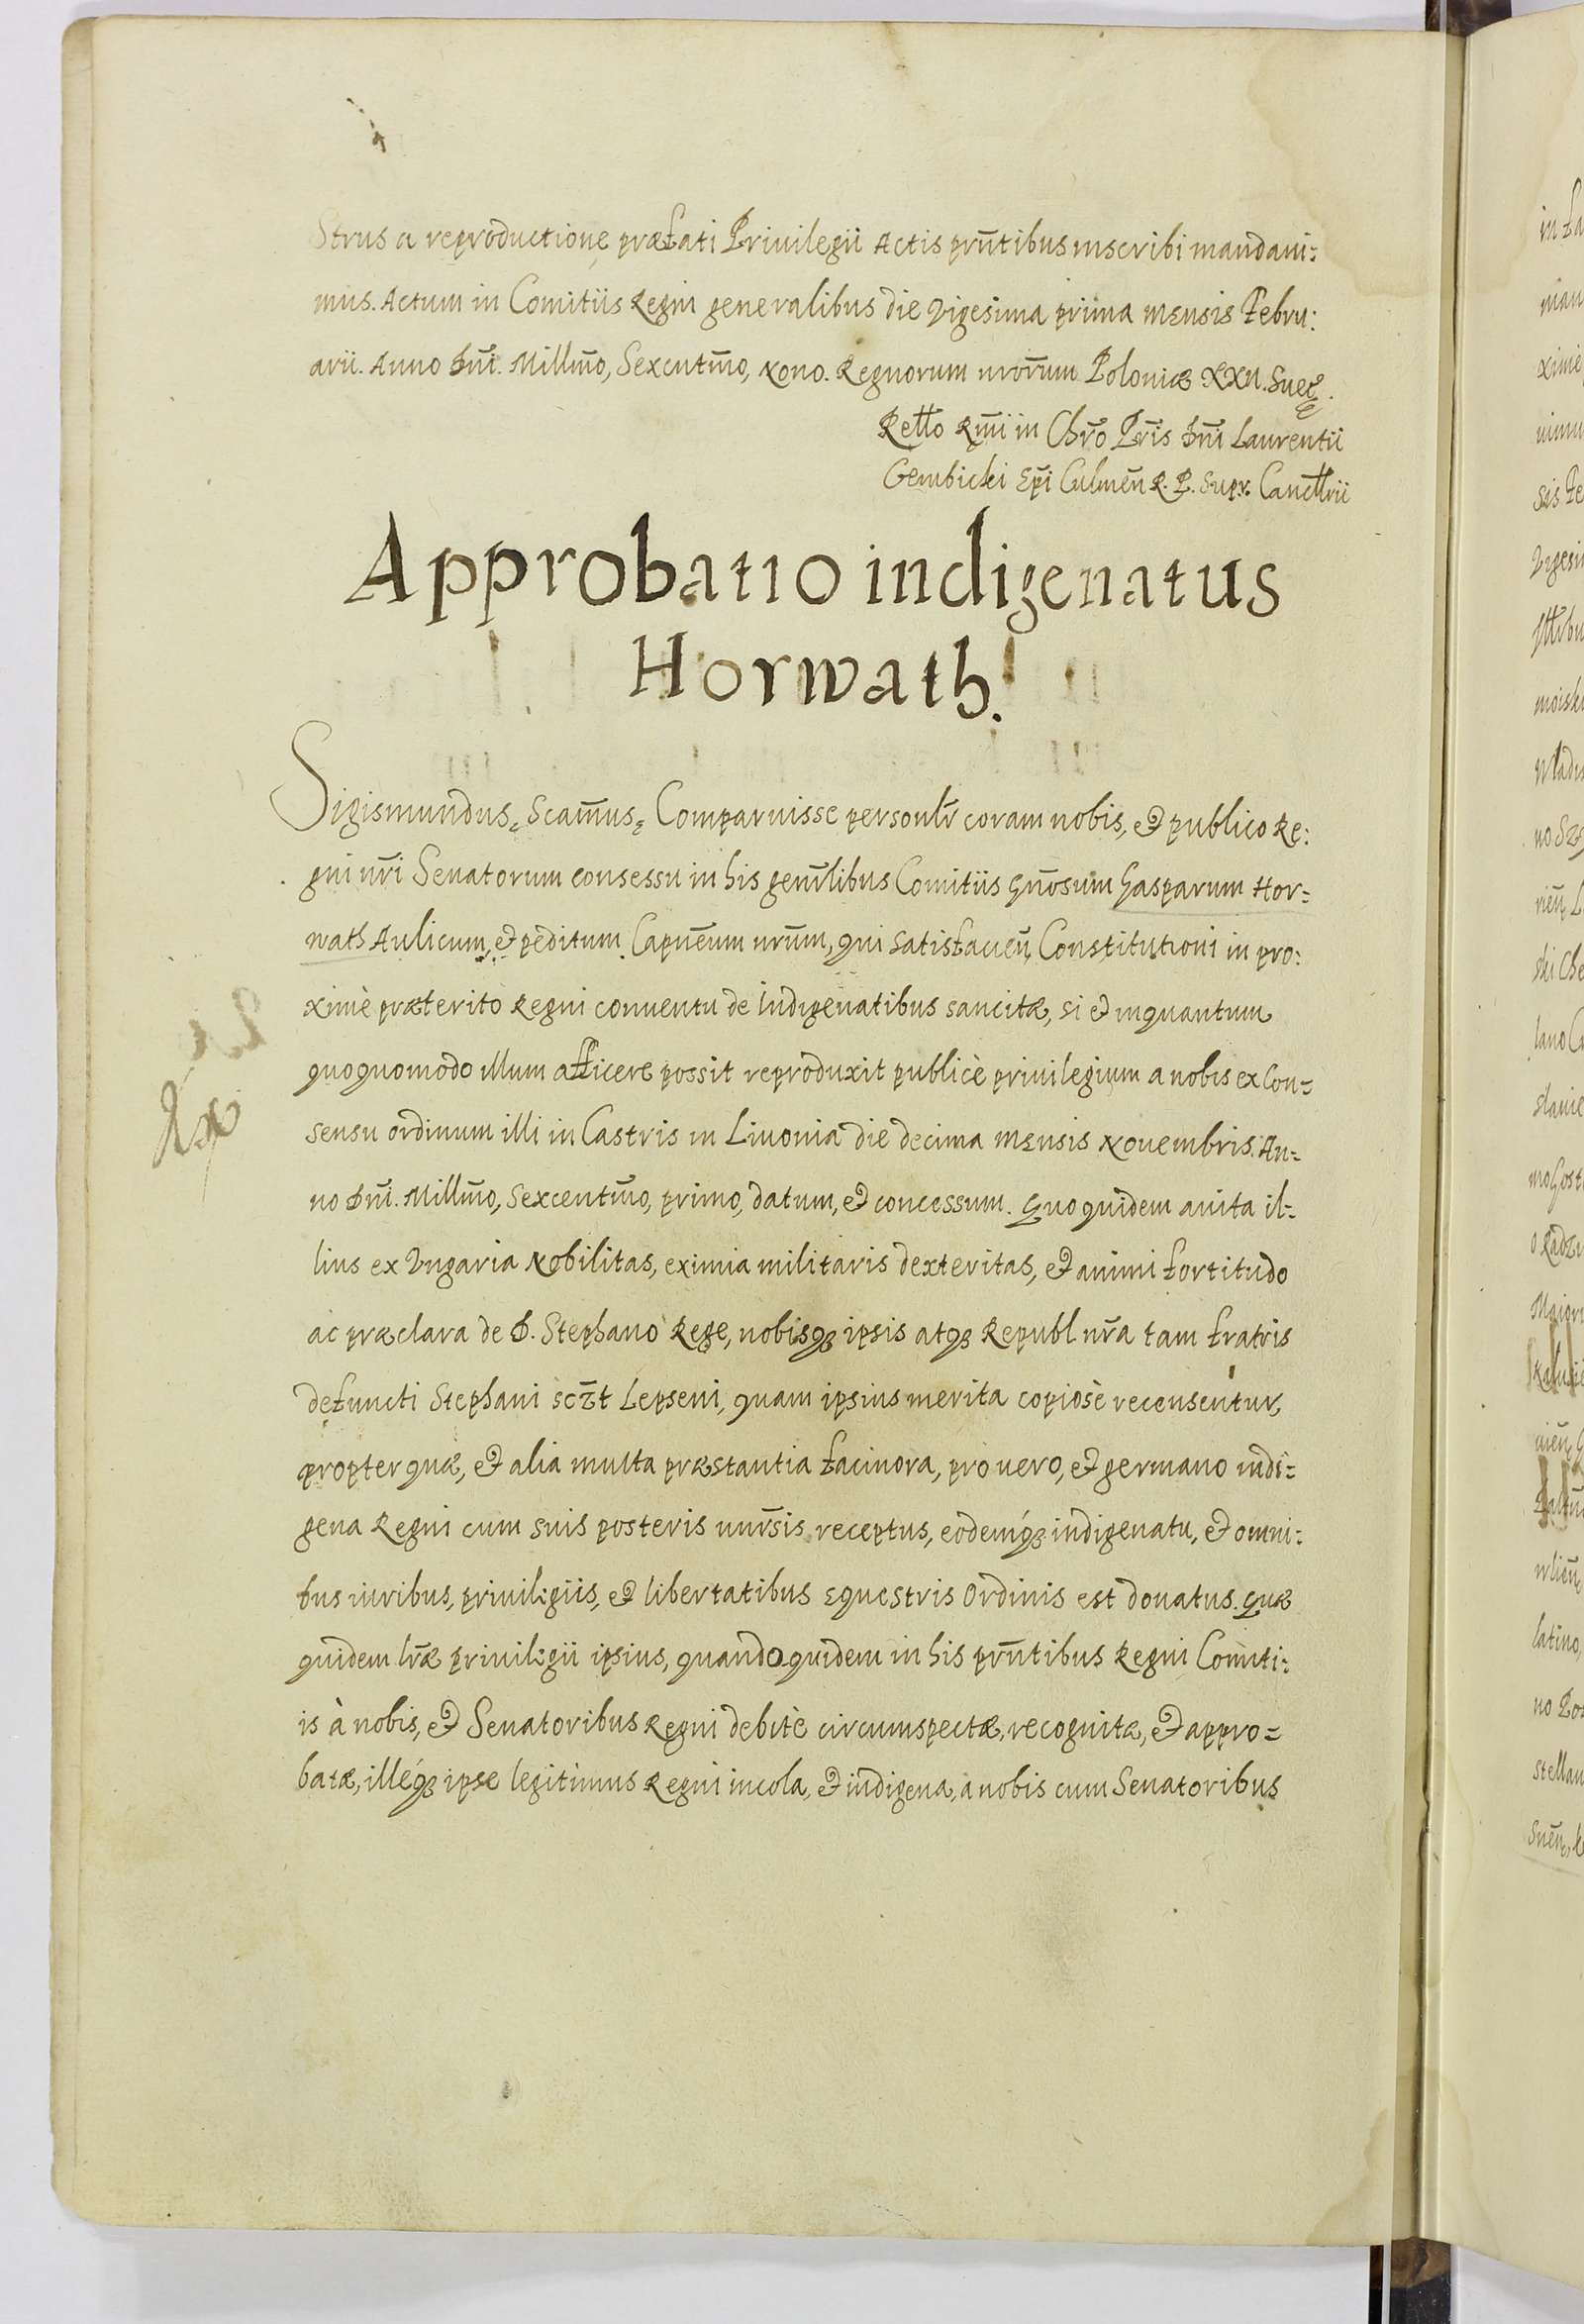 Strus a reproductione præfati Priuilegii Actis prñtibus inscribi mandaui:
mus. Actum in Comitiis Regni generalibus die Vigesima prima mensis Febru:
arii. Anno Dñi. Millm̃o, Sexcntm̃o, Nono. Regnorum nror̃um Poloniæ XXII. Suetę.
Retto Rm̃i in Chrõ Pr̃is Dñi Laurentii
Gembicki Epĩ Culmeñ R. P. Supr. Cancttrii
Approbatio indigenatus
Horwath.
Sigismundus, Scam̃us, Comparuisse personlr̃ coram nobis, et publico Re:
gni nr̃i Senatorum consessu in his genr̃libus Comitiis Gñosum Gasparum Hor=
wath Aulicum, et peditum Capnẽum nrũm, qui satisfacieñ Constitutioni in pro:
ximè præterito Regni conuentu de Indigenatibus sancitæ, si et inquantum
quoquomodo illum afficere possit reproduxit publicè priuilegium a nobis ex Con=
sensu ordinum illi in Castris in Liuonia die decima mensis Nouembris. An=
no Dñi. Millm̃o, Sexcentm̃o, primo, datum, et concessum. Quo quidem auita il=
lius ex Vngaria Nobilitas, eximia militaris dexteritas, et animi fortitudo
ac præclara de D. Stephano Rege, nobisqꝫ ipsis atqꝫ Republ nr̃a tam fratris
defuncti Stephani sczt̃ Lepseni, quam ipsius merita copiosè recensentur,
propter quæ, et alia multa præstantia facinora, pro uero, et germano indi=
gena Regni cum suis posteris uniur̃sis receptus, eodemqꝫ indigenatu, et omni:
bus iuribus, priuilegiis, et libertatibus Equestris Ordinis est donatus. Quæ
quidem lr̃æ priuilegii ipsius, quandoquidem in his prñtibus Regni Comiti:
is à nobis, et Senatoribus Regni debitè circumspectæ, recognitæ, et appro=
batæ, illéqꝫ ipse legitimus Regni incola, et indigena, a nobis cum Senatoribus